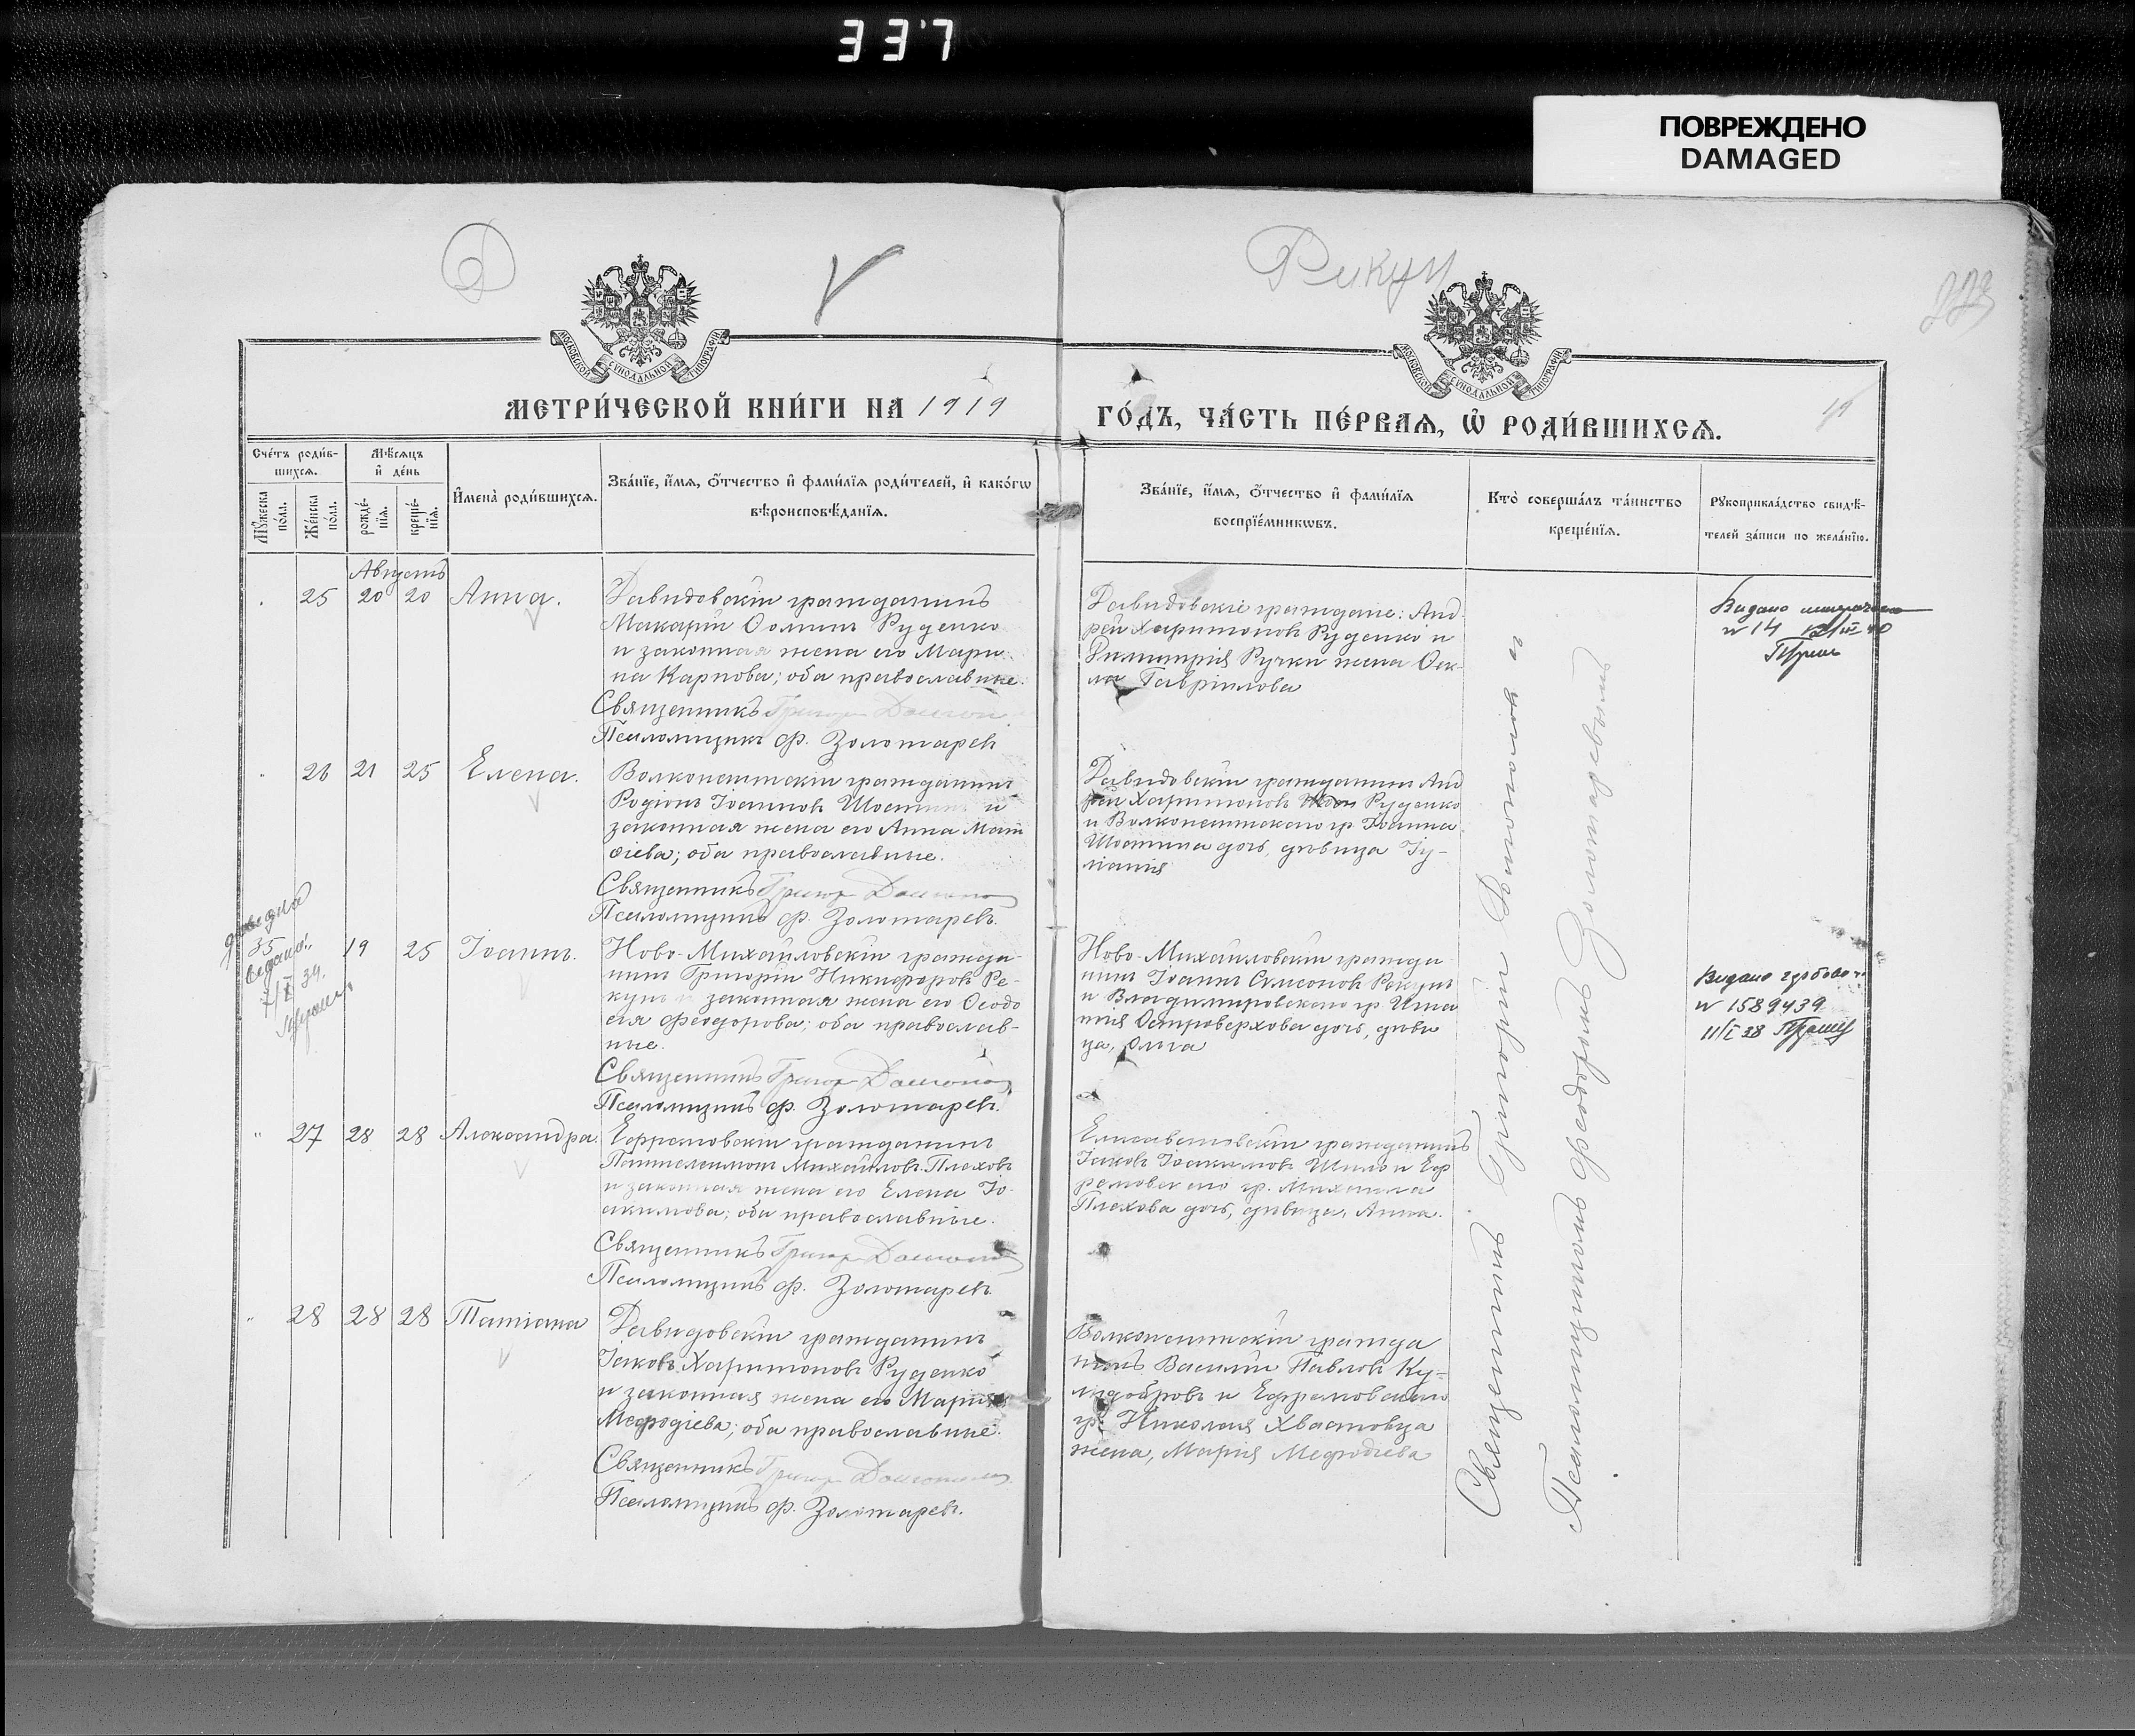 337
ПОВРЕЖДЕНО
DAMAGED
Рикун
223
МОСКОВСКОЙ СѴНОДАЛЬНОЙ ТИПОГРАФІИ
МОСКОВСКОЙ СѴНОДАЛЬНОЙ ТИПОГРАФІИ
МЕТРИ́ЧЕСКОЙ КНИ́ГИ НА 1919
ГО́ДЪ, ЧА́СТЬ ПЕ́РВАѦ, Ѡ҆ РОДИ́ВШИХСѦ.
Сче́тъ роди́в-
шихсѧ.
Мꙋ́жеска
по́ла.
Же́нска
по́ла.
Мѣ́сѧцъ
и҆ де́нь
рожде́-
нїѧ.
креще́-
нїѧ.
И҆мена̀ роди́вшихсѧ.
Зва́нїе, и҆́мѧ, ѻ҆́тчество и҆ фами́лїѧ роди́телей, и҆ како́гѡ
вѣроисповѣ́данїѧ.
Зва́нїе, и҆́мѧ, ѻ҆́тчество и҆ фами́лїѧ
воспрїе́мникѡвъ.
Кто̀ соверша́лъ та́инство
креще́нїѧ.
Рꙋкоприкла́дство свидѣ́-
телей за́писи по жела́нїю.
Августъ
25 20 20 Анна.
Давидовскій гражданинъ
Макарій Ѳоминъ Руденко
и законная жена его Мари-
на Карпова; оба православные.
Священникъ Григор
Псаломщикъ Ф. Золотаревъ
Давидовскіе граждане: Анд-
рей Харитоновъ Руденко и
Димитрія Ручки жена Ѳек-
ла Гавріилова
Видано
№ 14
26 21 25 Елена.
Волконештскій гражданинъ
Родіонъ Іоанновъ и
законная жена его Анна Мат
ѳіева; оба православные.
Священникъ Григор
Псаломщикъ Ф. Золотаревъ.
Давидовскій гражданинъ Анд
рей Харитоновъ Руденко
и Волконештскаго гр. Іоанна
дочь, дѣвица Іу-
ліанія
35 19 25 Іоаннъ.
Ново-Михайловскій гражда-
нинъ Григорій Никифоровъ Ре-
кунъ и законная жена его Ѳеодо
сія Феодорова; оба православ-
ные.
Священникъ Григор
Псаломщикъ Ф. Золотаревъ.
Ново-Михайловскій гражда
нинъ Іоаннъ Симеоновъ Рекунъ
и Владимировскаго гр. Игна
тія Островерхова дочь, дѣви
ца, Ольга
Видано
№ 1589439
11/I 38
27 28 28 Александра.
Ефремовскій гражданинъ
Пантелеимонъ Михайловъ Плоховъ
и законная жена его Елена Іо-
акимова; оба православные.
Священникъ Григор
Псаломщикъ Ф. Золотаревъ
Елисаветовскій гражданинъ
Іаковъ Іоакимовъ Шило и Еф
ремовскаго гр. Михаила
Плохова дочь, дѣвица, Анна.
28 28 28 Татіана
Давидовскій гражданинъ
Іаковъ Харитоновъ Руденко
и законная жена его Марія
Меѳодіева; оба православные.
Священникъ Григор
Псаломщикъ Ф. Золотаревъ.
Волконештскій гражда
нинъ Василій Павловъ Ку-
и Ефремовскаго
гр. Николая Хвастовца
жена, Марія Меѳодіева
Священникъ Григорій
Псаломщикомъ Феодоромъ Золотаревымъ